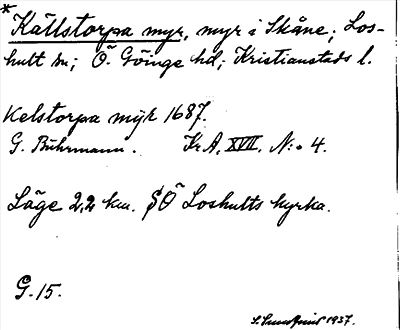 *
Källstorpa myr, myr i Skåne; Los-
hult sn; Ö. Göinge hd; Kristianstads l.
Kelstorpa mÿr 1687.
G. Buhrmann. Kr A, XVII, N:o 4.
Läge 2,2 km. SÖ Loshults kyrka.
G. 15.
1937.